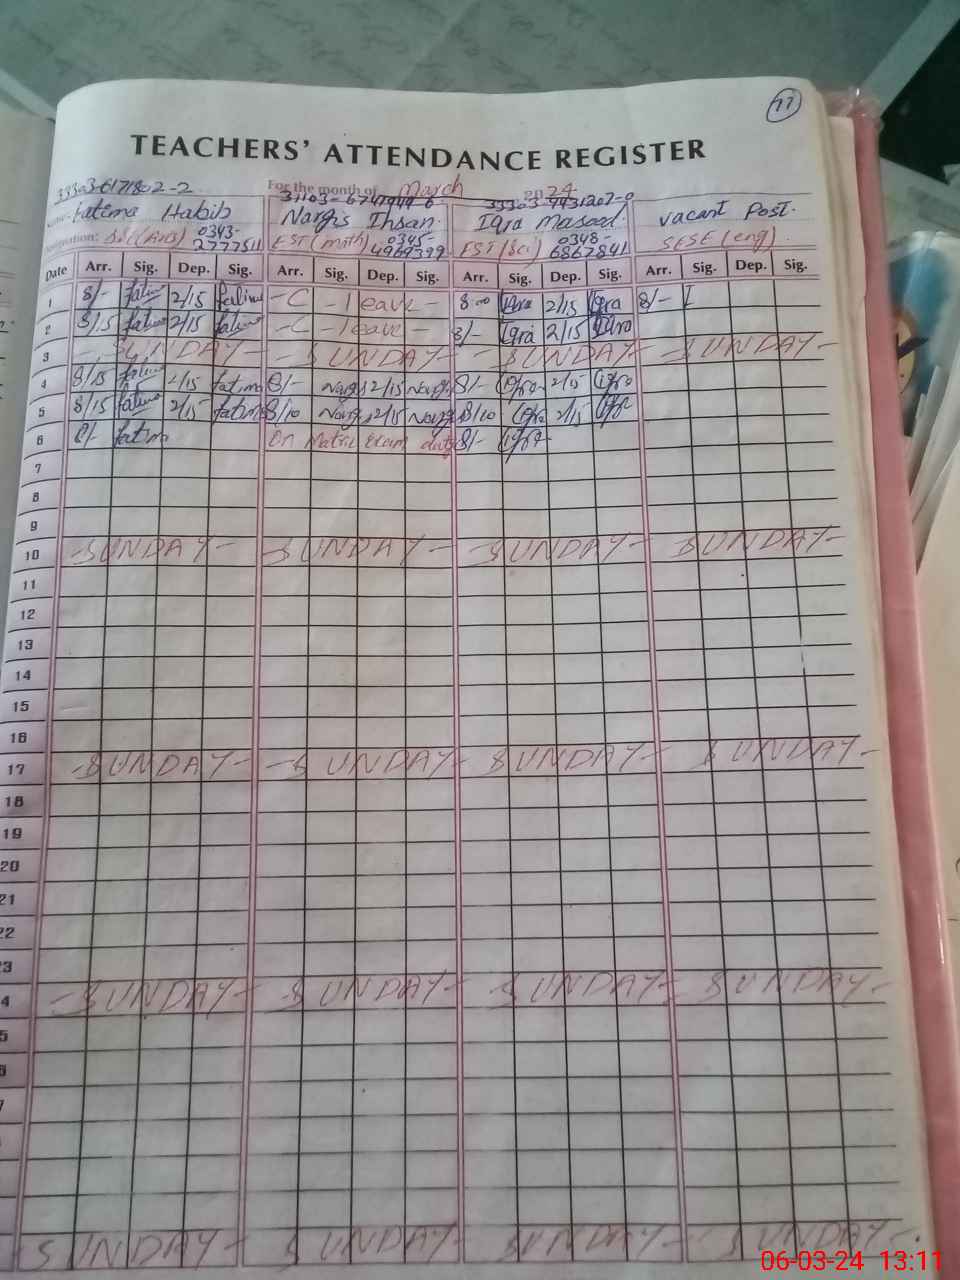 77
TEACHERS' ATTENDANCE REGISTER
33303-6171802-2 For the month of March 2024
Fatima Habib Nargis Ihsan. Iqra Masood Vacant Post.
Designation: 0343-2777511 EST (math) 0345-4969399 EST (Sci) 0348-6867841 SESE (eng)
Date Arr. Sig. Dep. Sig. Arr. Sig. Dep. Sig. Arr. Sig. Dep. Sig. Arr. Sig. Dep. Sig.
1 8/- fatima 2/15 fatima -C - leave - 8-00 Iqra 2/15 Iqra 8/-
2 8/15 fatima 2/15 fatima -C - leave - 8/- Iqra 2/15 Iqra
3 - SUNDAY - - SUNDAY - - SUNDAY - - SUNDAY -
4 8/15 fatima 2/15 fatima 8/- Nargis 2/15 Nargis 8/- Iqra 2/15 Iqra
5 8/15 fatima 2/15 fatima 8/10 Nargis 2/15 Nargis 8/10 Iqra 2/15 Iqra
6 8/- fatima On Matric Exam duty 8/- Iqra
7
8
9
10 -SUNDAY- -SUNDAY- -SUNDAY- -SUNDAY-
11
12
13
14
15
16
17 -SUNDAY- -SUNDAY- SUNDAY- SUNDAY-
18
19
20
21
22
23
4 -SUNDAY- SUNDAY- SUNDAY- SUNDAY-
5
SUNDAY- SUNDAY- SUNDAY- SUNDAY-
06-03-24 13:11